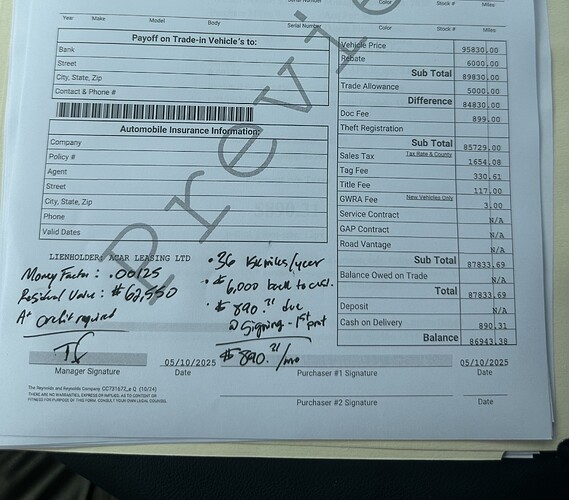 Serial Number Color Stock # Miles
Year Make Model Body Serial Number Color Stock # Miles
Payoff on Trade-in Vehicle's to:
Bank
Street
City, State, Zip
Contact & Phone #
Automobile Insurance Information:
Company
Policy #
Agent
Street
City, State, Zip
Phone
Valid Dates
Vehicle Price 95830.00
Rebate 6000.00
Sub Total 89830.00
Trade Allowance 5000.00
Difference 84830.00
Doc Fee 899.00
Theft Registration
Sub Total 85729.00
Sales Tax Tax Rate & County 1654.08
Tag Fee 330.61
Title Fee 117.00
GWRA Fee New Vehicles Only 3.00
Service Contract N/A
GAP Contract N/A
Road Vantage N/A
Sub Total 87833.69
Balance Owed on Trade N/A
Total 87833.69
Deposit N/A
Cash on Delivery 890.31
Balance 86943.38
Preview
LIENHOLDER: ACAR LEASING LTD
Money Factor: .00125
Residual Value: $62,550
A+ credit required
• 36 15k miles/year
• $6,000 back to cust.
• $890.31 due
@ signing - 1st pmt
$890.31/mo
05/10/2025
Manager Signature Date
05/10/2025
Purchaser #1 Signature Date
Purchaser #2 Signature Date
The Reynolds and Reynolds Company CC731672_x Q (10/24)
THERE ARE NO WARRANTIES, EXPRESS OR IMPLIED, AS TO CONTENT OR
FITNESS FOR PURPOSE OF THIS FORM. CONSULT YOUR OWN LEGAL COUNSEL.